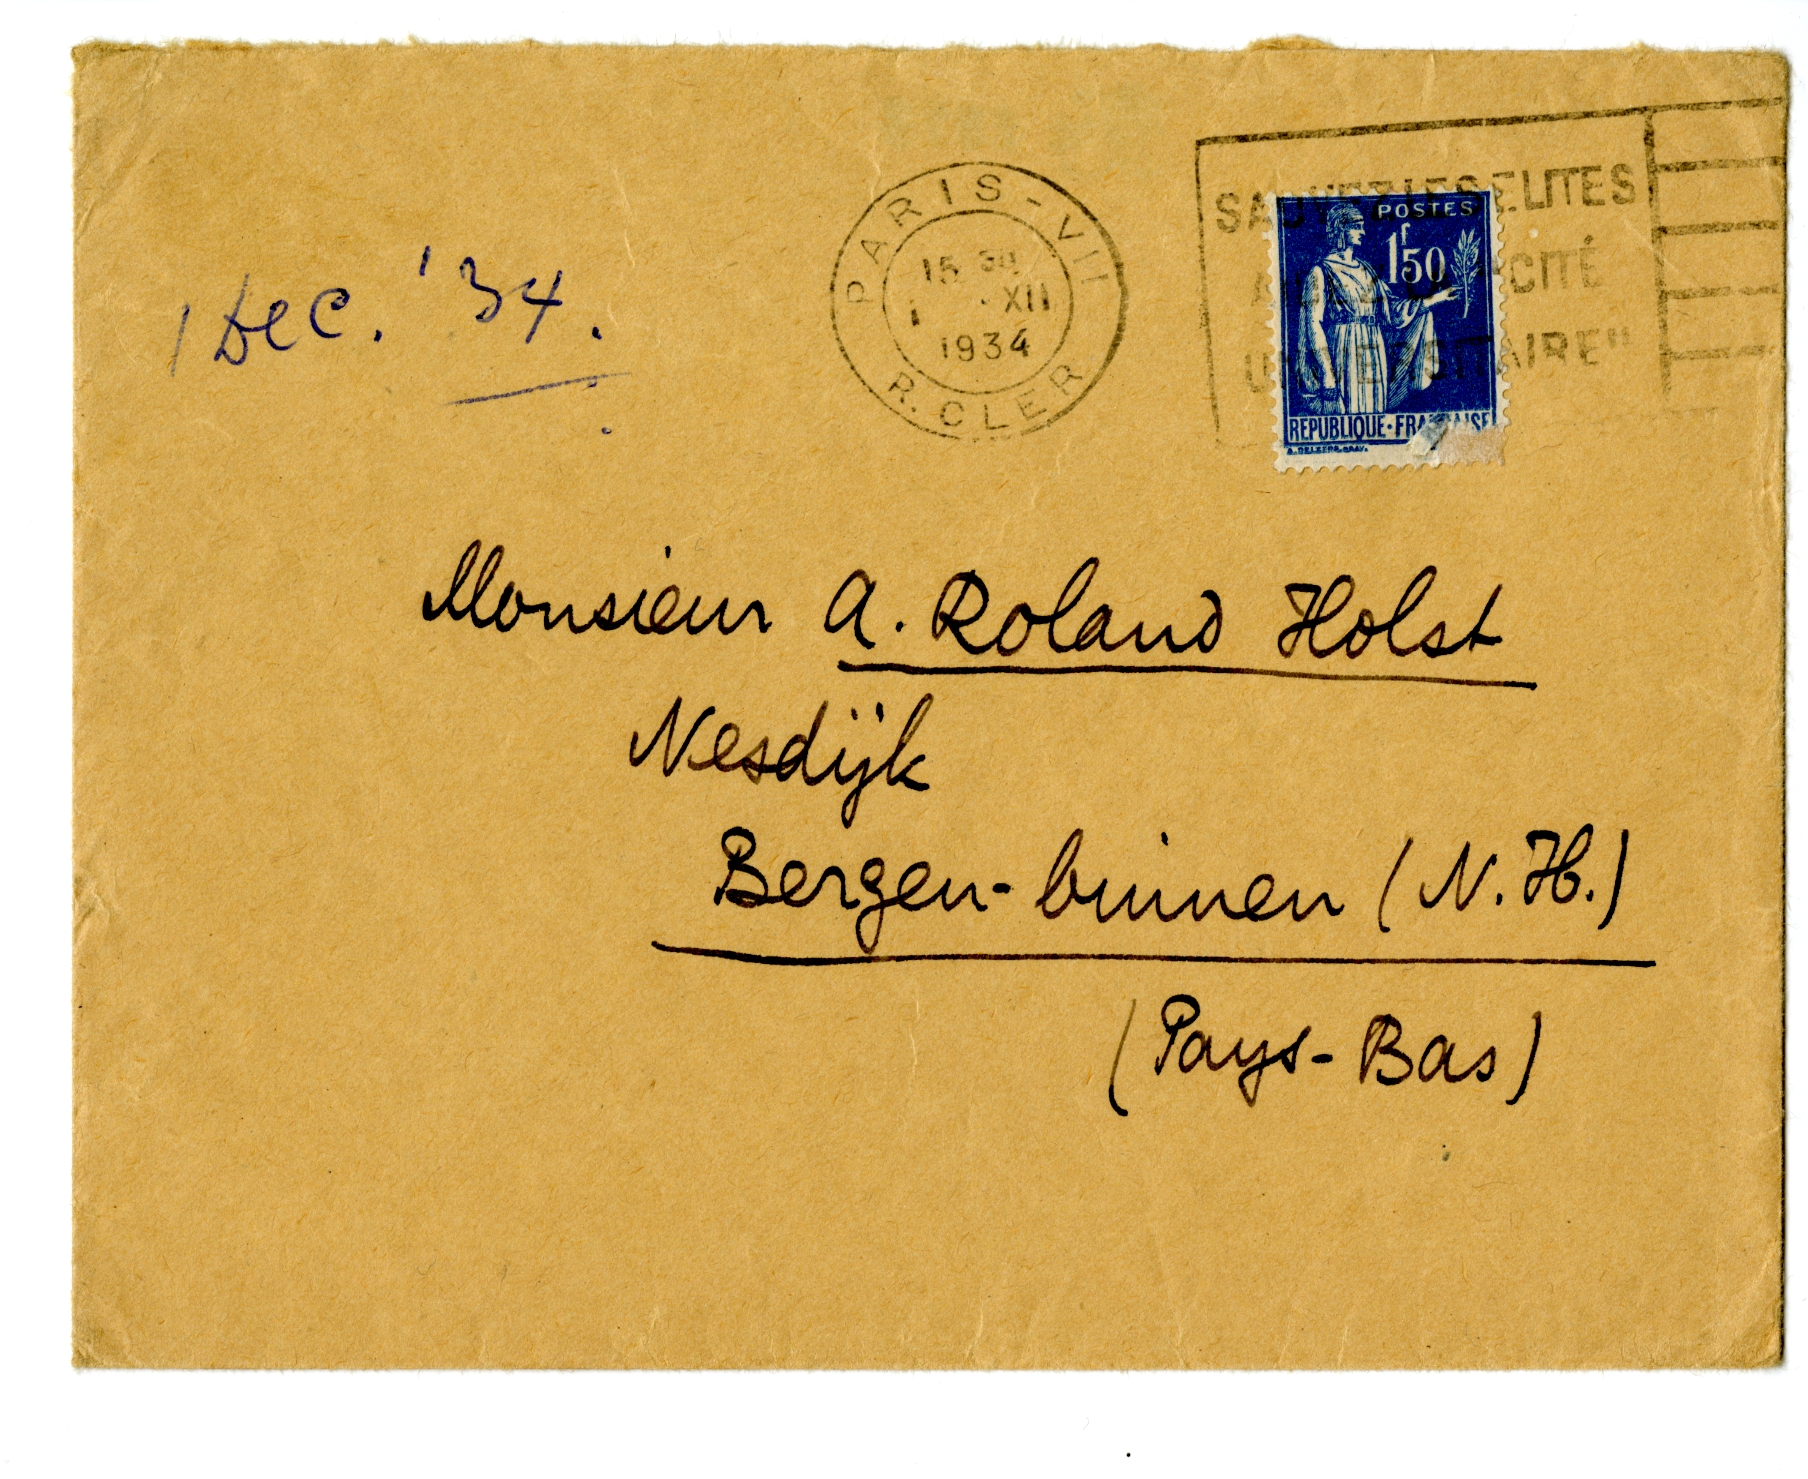 1 Dec. '34.
PARIS-VII
15 30
1 · XII
1934
R. CLER
SAUVEZ LES ELITES
CITÉ
UNIVERSITAIRE"
POSTES
1f50
REPUBLIQUE·FRANÇAISE
Monsieur A. Roland Holst
Nesdijk
Bergen-binnen (N.H.)
(Pays-Bas)